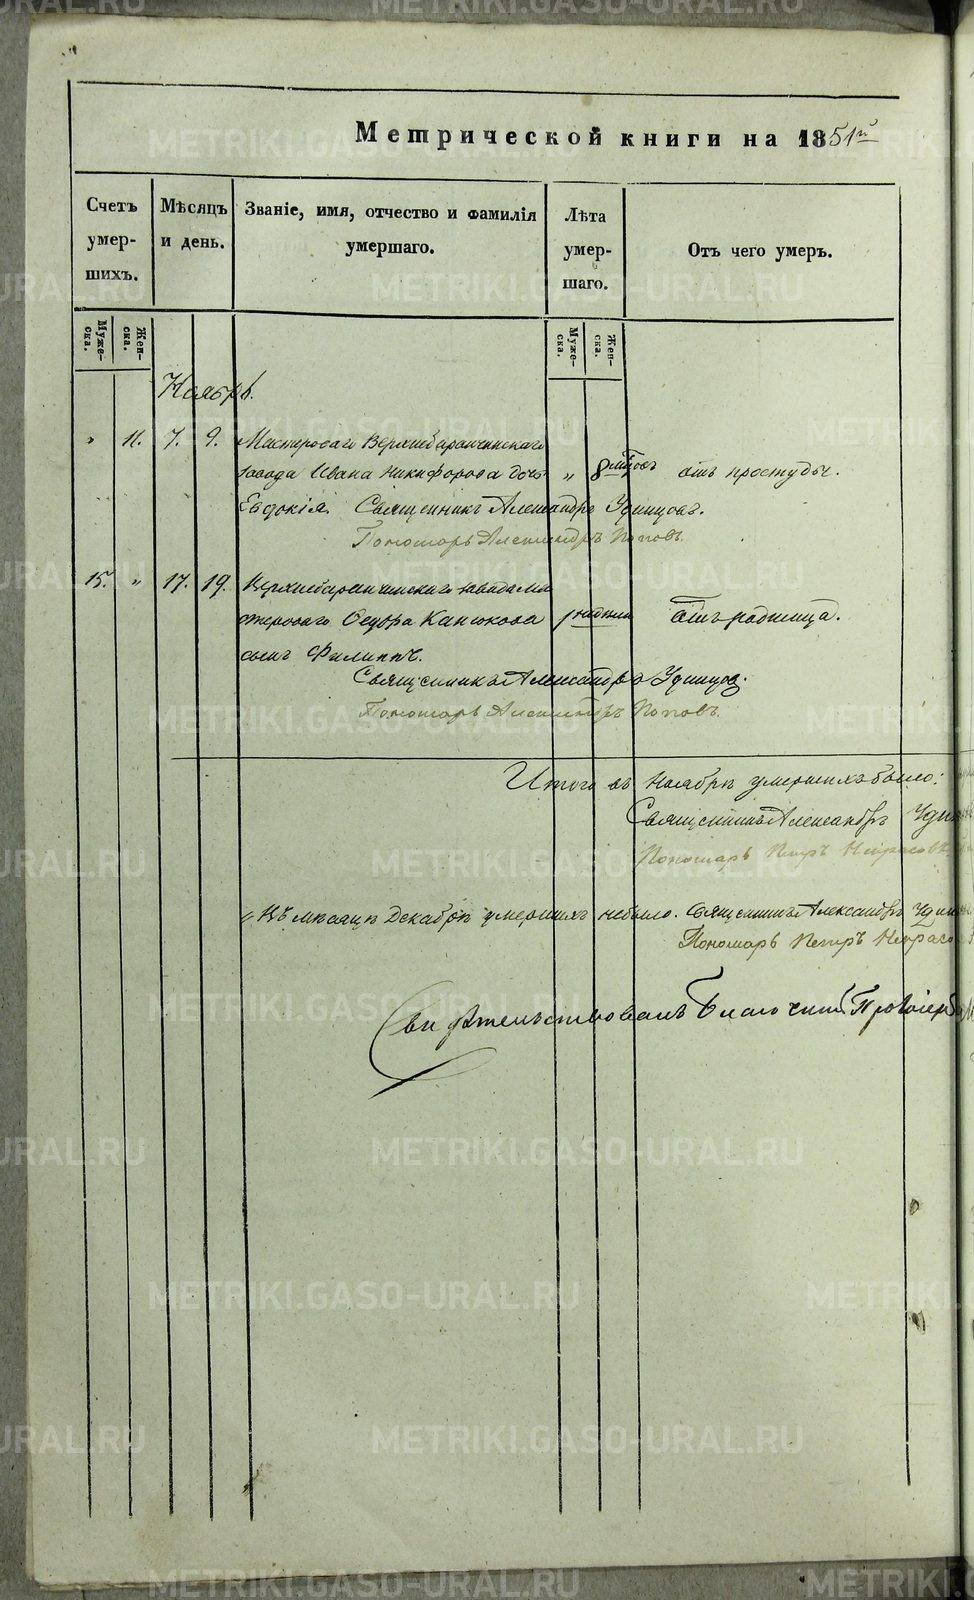 Метрической книги на 1851й
Счетъ умер-шихъ.
Мѣсяцъ и день.
Званіе, имя, отчество и фамилія умершаго.
Лѣта умер-шаго.
Отъ чего умеръ.
Муже-ска.
Жен-ска.
Муже-ска.
Жен-ска.
Ноябрь.
" 11. 7. 9. Мастероваго Верхнебаранчинскаго
завода Ивана Никифорова дочь " 8 отъ простуды.
Евдокія. Священникъ Александръ Удинцовъ.
Пономарь Александръ Поповъ.
15. " 17. 19. Верхнебаранчинскаго завода ма
стероваго Ѳедора Канюкова отъ родимца.
сынъ Филиппъ.
Священникъ Александръ Удинцовъ.
Пономарь Александръ Поповъ.
Итого въ Ноябрѣ умершихъ было:
Священникъ Александръ
Пономарь Петръ Некрасовъ
Въ мѣсяцѣ Декабрѣ умершихъ небыло. Священникъ Александръ
Пономарь Петръ
Свидѣтельствовалъ Благочинный
METRIKI.GASO-URAL.RU